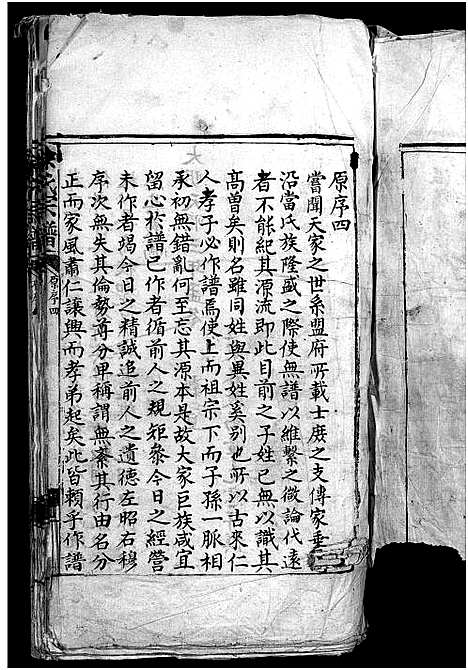 原序四
嘗聞天家之世系盟府所載士庶之支傳家乘
沿當氏族隆盛之際使無譜以維繫之微論代遠
者不能紀其源流即此目前之子姓已無以識其
高曾矣則名雖同姓與異姓奚別也所以古來仁
人孝子必作譜焉使上而祖宗下而子孫一脈相
承初無錯亂何至忘其源本是故大家巨族咸宜
留心於譜已作者循前人之規矩參今日之經營
未作者竭今日之精誠追前人之遺德左昭右穆
序次無失其倫勢尊分卑稱謂無紊其行由名分
正而家風肅仁讓興而孝弟起矣此皆賴乎作譜
氏宗譜
原序四